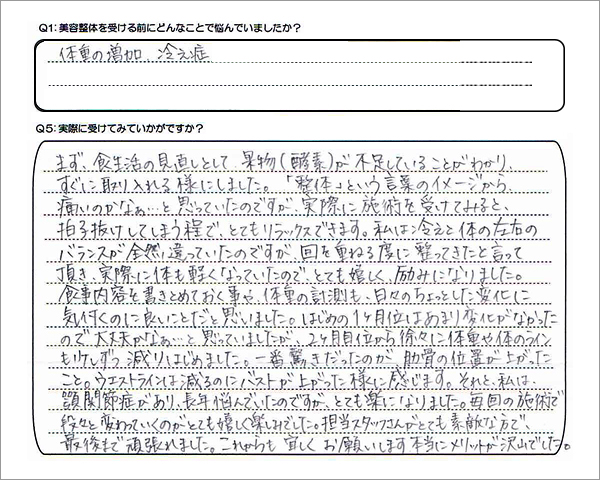 Q1:美容整体を受ける前にどんなことで悩んでいましたか?
体重の増加、冷え症
Q5:実際に受けてみていかがですか?
まず、食生活の見直しとして、果物(酵素)が不足していることがわかり、
すぐに取り入れる様にしました。「整体」という言葉のイメージから、
痛いのかなぁ…と思っていたのですが、実際に施術を受けてみると、
拍子抜けしてしまう程で、とてもリラックスできます。私は冷えと体の左右の
バランスが全然違っていたのですが、回を重ねる度に整ってきたと言って
頂き、実際に体も軽くなっていたので、とても嬉しく、励みになりました。
食事内容を書きとめておく事や、体重の計測も、日々のちょっとした変化に
気付くのに良いことだと思いました。はじめの1ヶ月位はあまり変化がなかった
ので大丈夫かなぁ…と思っていましたが、2ヶ月目位から徐々に体重や体のライン
も少しずつ減りはじめました。一番驚きだったのが、肋骨の位置が上がった
こと。ウエストラインは減るのにバストが上がった様に感じます。それと、私は、
顎関節症があり、長年悩んでいたのですが、とても楽になりました。毎回の施術で
段々と変わっていくのがとても嬉しく楽しみでした。担当スタッフさんがとても素敵な方で、
最後まで頑張れました。これからも宜しくお願いします本当にメリットが沢山でした。